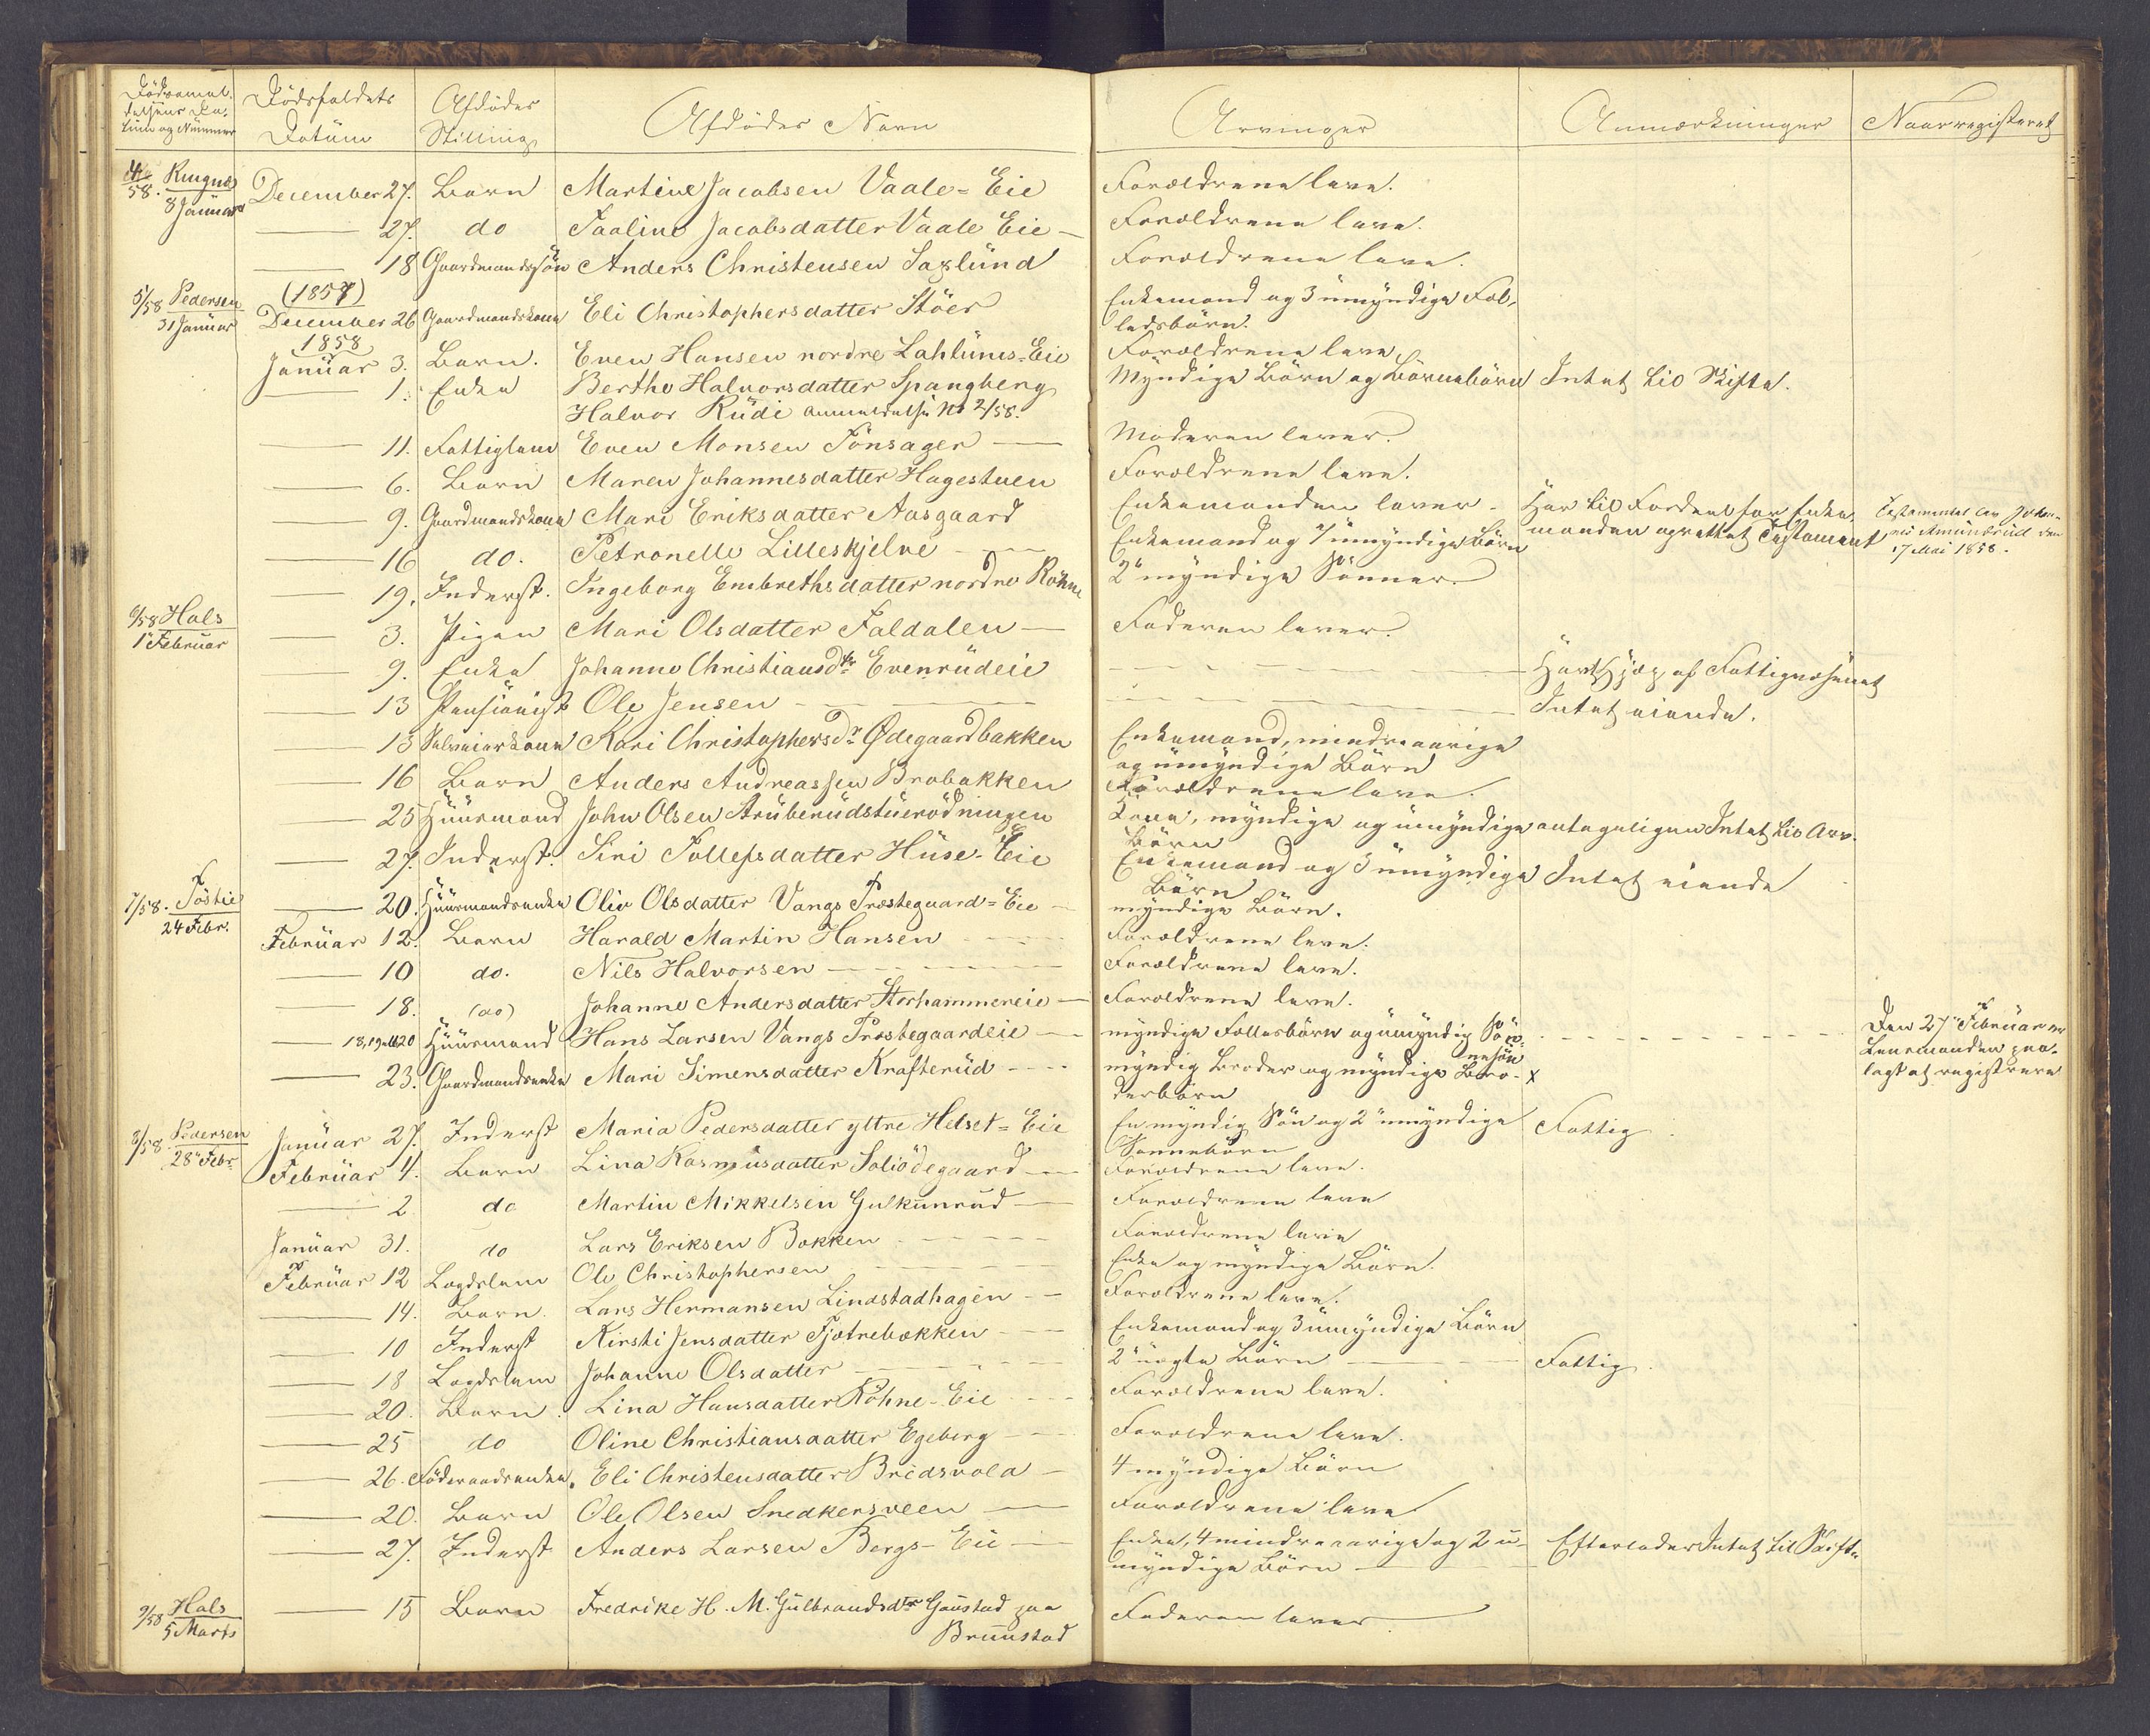 Dødsanmel- Dødsfaldets Afdødes Afdødes Navn Arvinger Anmærkninger Naar registeret
delsens Da- Datum Stilling
tum og Nummer
4/58. Ringnes 8 Januar December 27. Barn Martine Jacobsen Vaale-Eie Forældrene leve.
— 27. do Paaline Jacobsdatter Vaale Eie — Forældrene leve.
— 18 Gaardmandssøn Anders Christensen Saxlund Forældrene leve.
(1857)
5/58 Pedersen 31 Januar December 26 Gaardmandskone Eli Christophersdatter Stöer Enkemand og 3 umyndige Fæl-
ledsbörn.
1858
Januar 3. Barn. Even Hansen nordre Lahlums-Eie Forældrene leve
— 1. Enke Berthe Halvorsdatter Spangberg Myndige Börn og Börnebörn Intet til Skifte.
Halvor Rudi Anmeldelse No 2/58.
— 11. Fattiglem Even Monsen Tönsager — Moderen lever.
— 6. Barn Maren Johannesdatter Hagestuen Forældrene leve.
— 9. Gaardmandskone Mari Eriksdatter Aasgaard Enkemanden lever - Har til Fordeel for Enke-
manden oprettet Testament
Testamentet
17 Mai 1858.
— 16 do. Petronelle Lilleskjelve — Enkemand og 7 umyndige Börn
— 19. Inderst. Ingeborg Embrethsdatter nordre Röhne 2 myndige Sönner.
6/58 Hals 1 Februar — 3. Pigen Mari Olsdatter Faldalen — Faderen lever.
— 9. Enke Johanne Christiansdtr Evenrudeie — Havt Hjælp af Fattigvæsenet
— 13 Pensionist Ole Jensen — Intet eiende.
— 13 Selveierkone Kari Christophersdr Ødegaardbakken Enkemand, mindreaarige
og umyndige Börn
— 16 Barn Anders Andreassen Brobakken Forældrene leve.
— 25 Huusmand John Olsen Aruberudstuerödningen Kone, myndige og umyndige antageligen Intet til Arv.
Börn
— 27. Inderst. Siri Tollefsdatter Huse-Eie Enkemand og 3 umyndige Intet eiende
Börn
7/58. Töstie 24 Febr. — 20. Huusmandsenke Olia Olsdatter Vangs Præstegaard-Eie — myndige Börn.
Februar 12. Barn Harald Martin Hansen — Forældrene leve.
— 10 do. Nils Halvorsen — Forældrene leve.
— 18. (do) Johanne Andersdatter Storhammereie — Forældrene leve.
— 18,19 ell 20 Huusmand Hans Larsen Vangs Præstegaardeie — myndige Fællesbörn og umyndig Sön-
nesön
Den 27 Februar er
Lensmanden paa-
lagt at registrere
— 23. Gaardmandsenke Mari Simensdatter Krafterud — myndig Broder og myndige Bro- x
derbörn
8/58. Pedersen 28 Febr Januar 27. Inderst Maria Pedersdatter yttre Helset-Eie En myndig Sön og 2 umyndige Fattig
Sönnebörn
Februar 4. Barn Lina Rasmusdatter Soliödegaard — Forældrene leve.
— 2 do Martin Mikkelsen Gulkunrud — Forældrene leve
Januar 31. do Lars Eriksen Bakken — Forældrene leve
Februar 12 Lægdslem Ole Christophersen — Enke og myndige Börn.
— 14. Barn Lars Hermansen Lindstadhagen — Forældrene leve.
— 10 Inderst Kirsti Jensdatter Fjætrebækken — Enkemand og 3 umyndige Börn
— 18 Lægdslem Johanne Olsdatter — 2 uægte Börn — Fattig.
— 20. Barn Lina Hansdatter Röhne-Eie Forældrene leve.
— 25 do Oline Christiansdatter Egeberg — Forældrene leve.
— 26. Föderaadsenke Eli Christensdatter Bredsvold — 4 myndige Börn
— 20. Barn Ole Olsen Snedkersveen — Forældrene leve
— 27. Inderst Anders Larsen Bergs-Eie — Enke, 4 mindreaarige og 2 u- Efterlader Intet til Skifte
myndige Börn —
9/58 Hals 5 Marts — 15 Barn Fredrike H. M. Gulbrandsdtr Gaustad paa Faderen lever
Bruustad